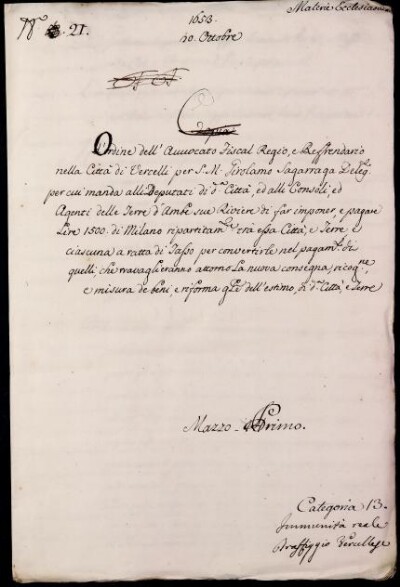 Materie Ecclesiastiche
1658.
N.° 21.
10. Ottobre
Copia
Ordine dell' Avvocato Fiscal Regio, e Refferendario
nella Città di Vercelli per S. M. Girolamo Sagarraga Deleg.
per cui manda alli Deputati di d.ª Città, ed alli Consoli, ed
Agenti delle Terre d'Ambe sue Riviere di far imporre, e pagare
Lire 1500. di Milano ripartitam.te trà essa Città, e Terre
ciascuna a ratta di Tasso per convertirle nel pagam.to di
quelli, che travaglieranno attorno La nuova consegna, ricog.ne,
e misura de beni, e riforma g.le dell'estimo, di d.ª Città, e Terre
Mazzo Primo.
Categoria 13.
Immunità reale
Vercellese